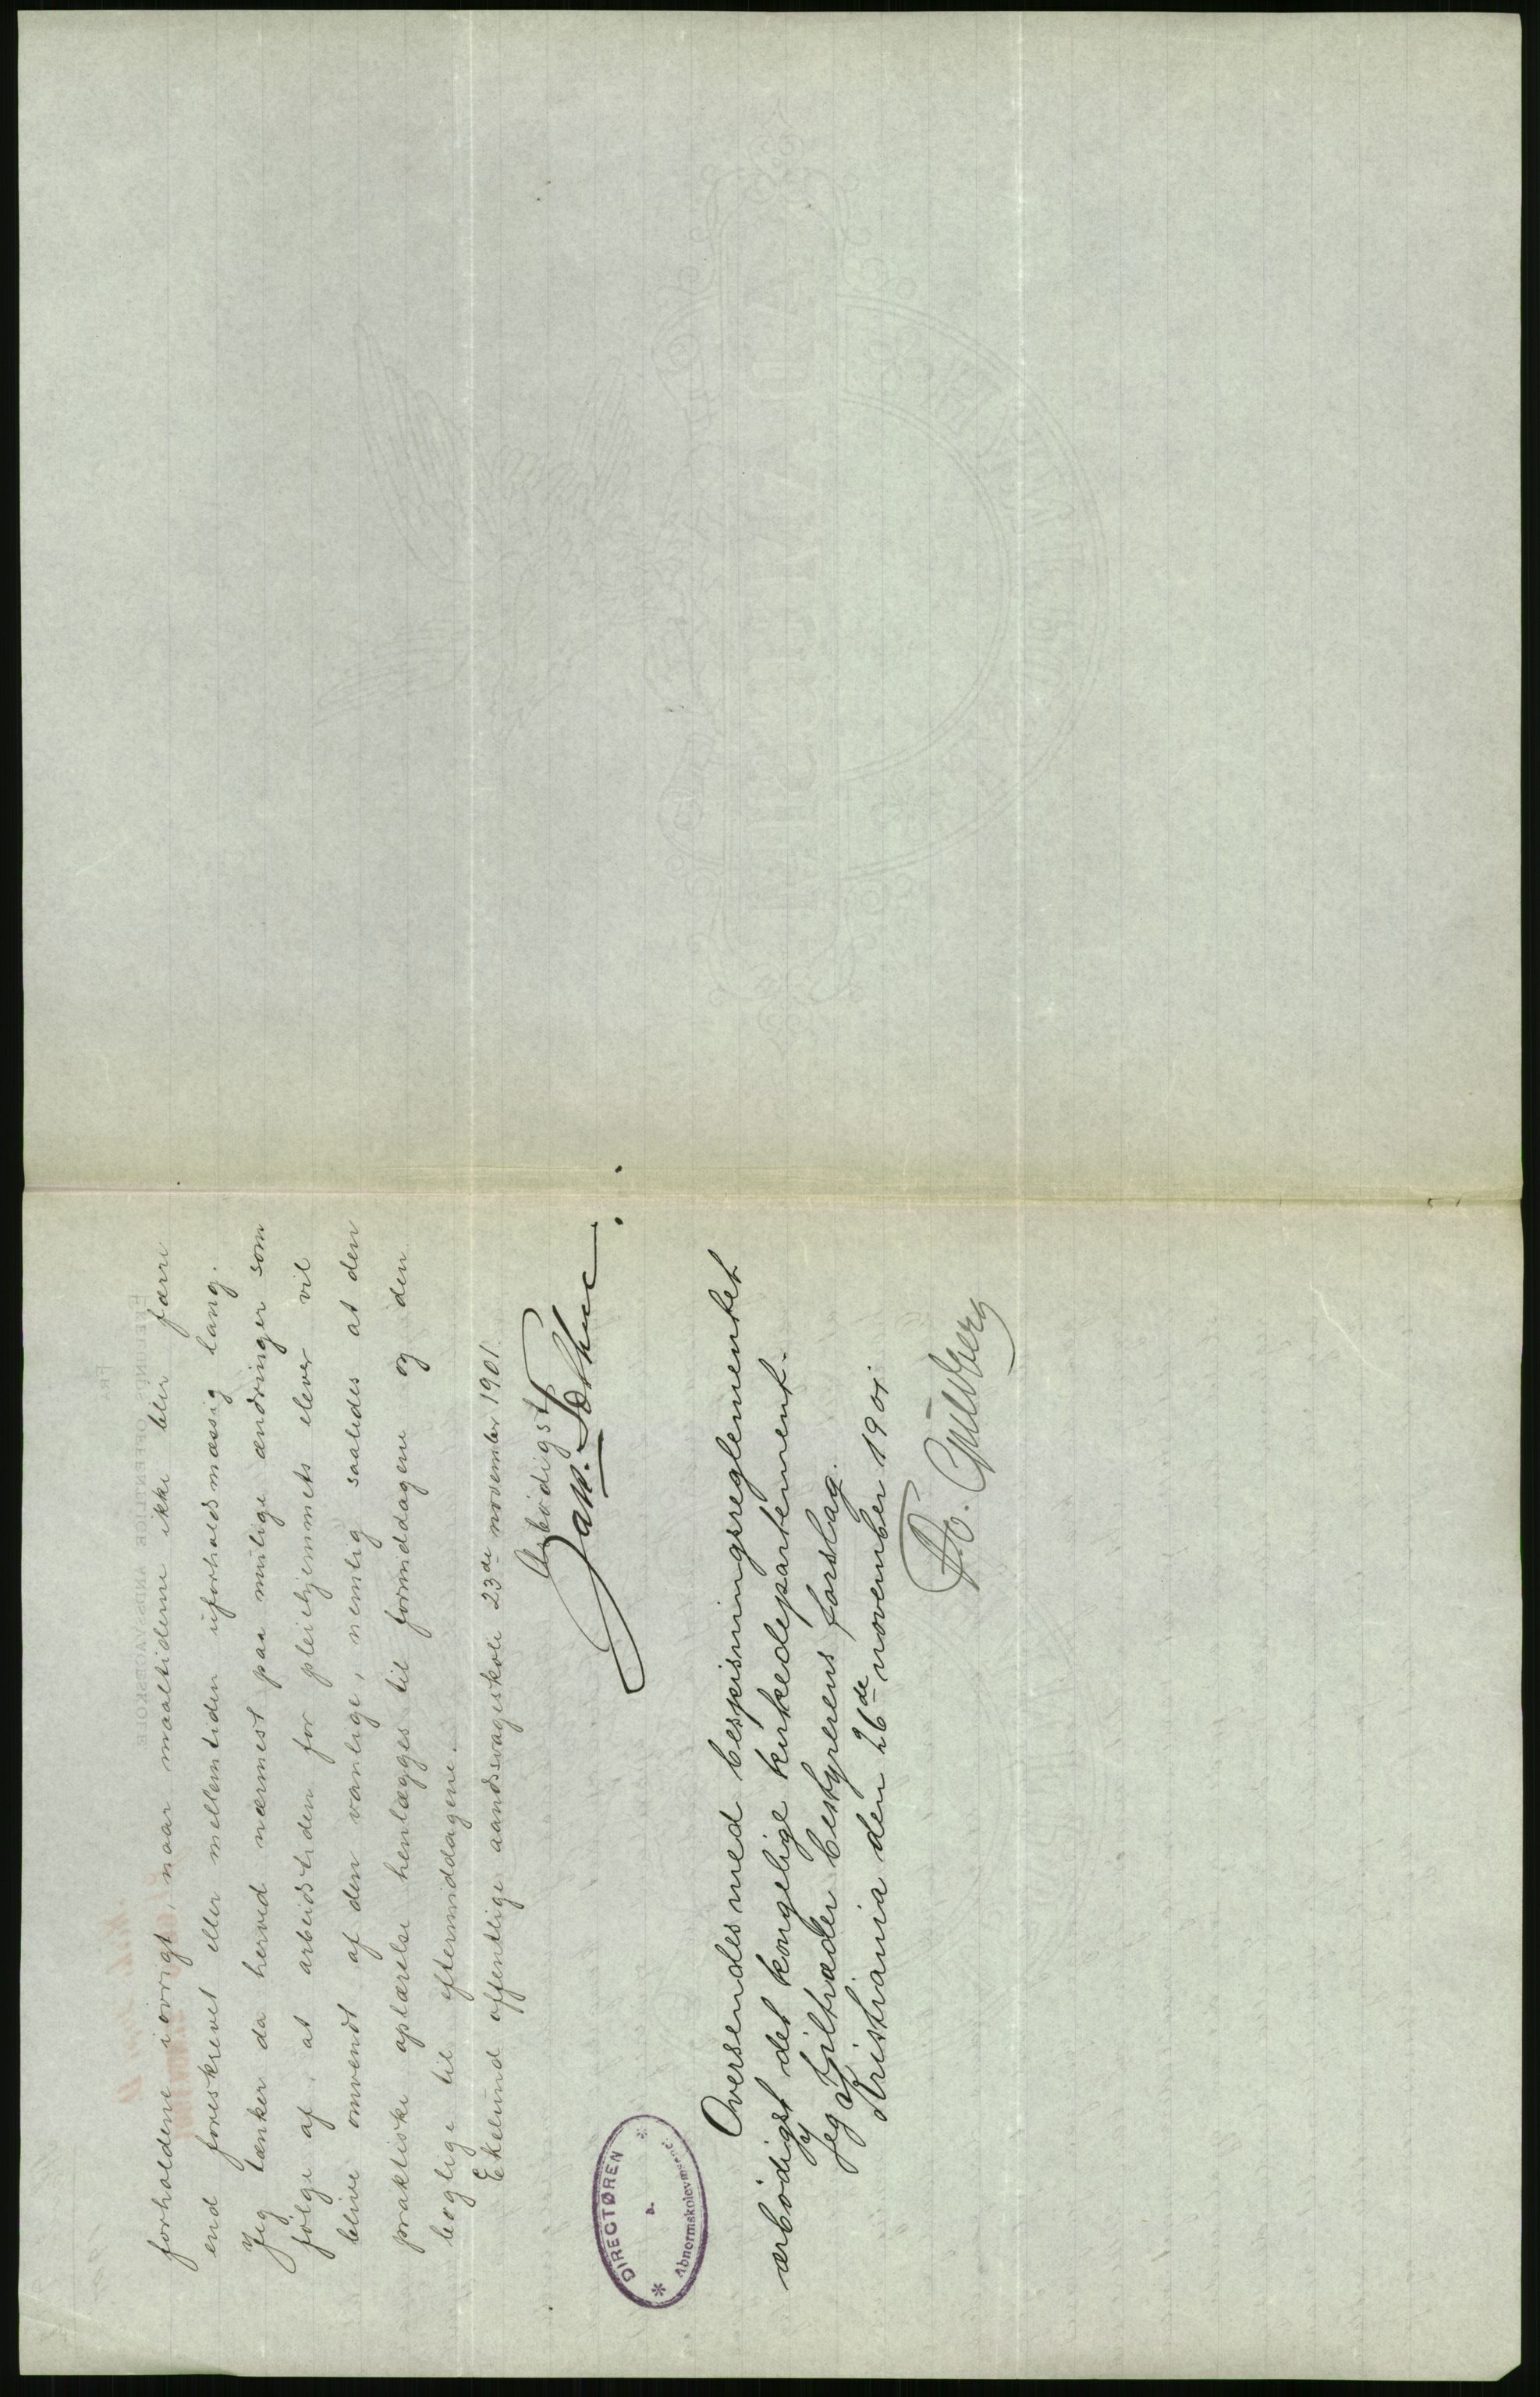 forholdene iövrigt, naar maaltiderne ikke blir færre
end foreskrevet eller mellemtiden uforholdsmæssig lang.
Jeg tænker da herved nærmest paa mulige ændringer som
følge af, at arbeidstiden for pleiehjemmets elever vil
blive omvendt af den vanlige, nemlig saaledes at den
praktiske oplærelse henlægges til formiddagene og den
boglige til eftermiddagene.
Ekelund offentlige aandssvageskole 23de november 1901.
Ærbödigst
DIRECTØREN
Abnormskolevæsenet
Oversendes med bespisningsreglementet
ærbödigst det kongelige kirkedepartement.
Jeg tiltræder bestyrerens forslag.
Kristiania den 26de november 1901.
Guldberg